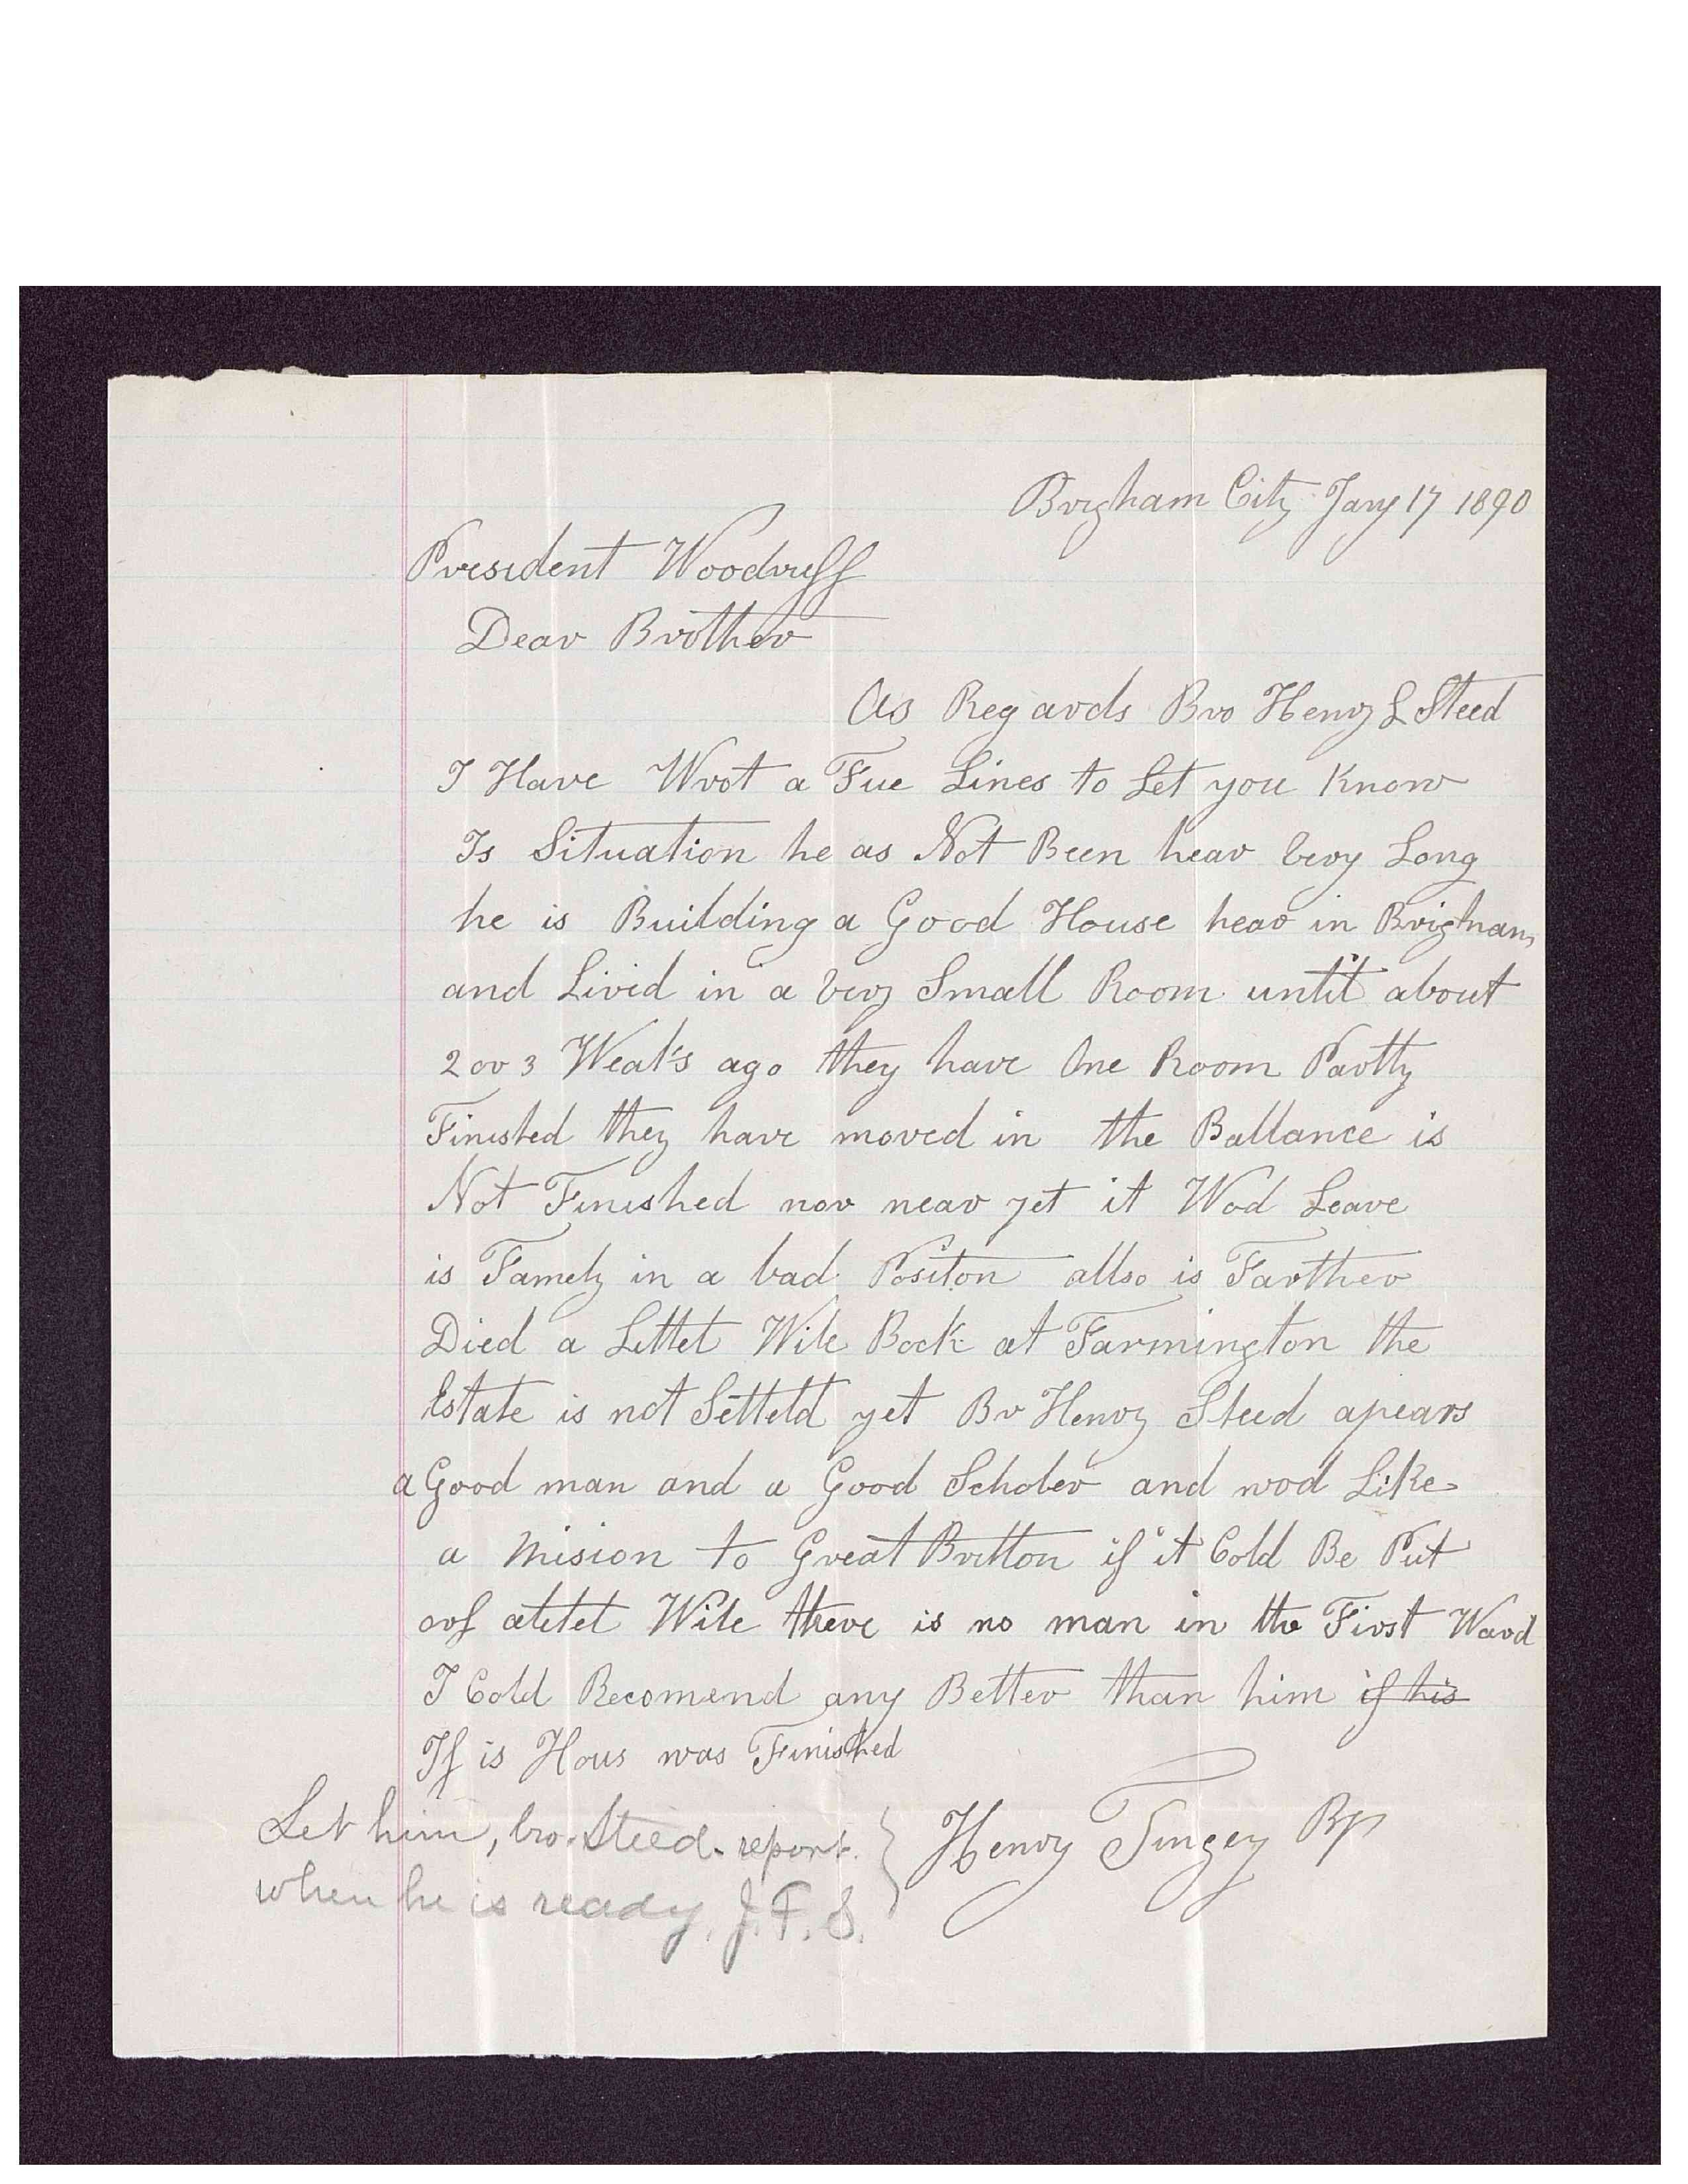 Brigham City Jany 17 1890
President Woodruff
Dear Brother
As Regards Bro Henry L Steed
I Have Wrot a Fue Lines to Let you Know
Is Situation he as Not Been hear Very Long
he is Building a Good House hear in Brigham
and Livid in a Very Small Room until about
2 or 3 Weak's ago they have One Room Partly
Finished they have moved in the Ballance is
Not Finished nor near yet it Wod Leave
is Famely in a bad Positon allso is Farther
Died a Littel Wile Back at Farmington the
Estate is not Setteld yet Br Henry Steed apears
a Good man and a Good Scholer and wod Like
a Mision to Great Britton if it Cold Be Put
orf alittel Wile there is no man in the First Ward
I Cold Recomend any Better than him if his
If is Hous was Finished
Henry Tingey Bp
Let him, bro. Steed. report.
when he is ready. J. F. S.